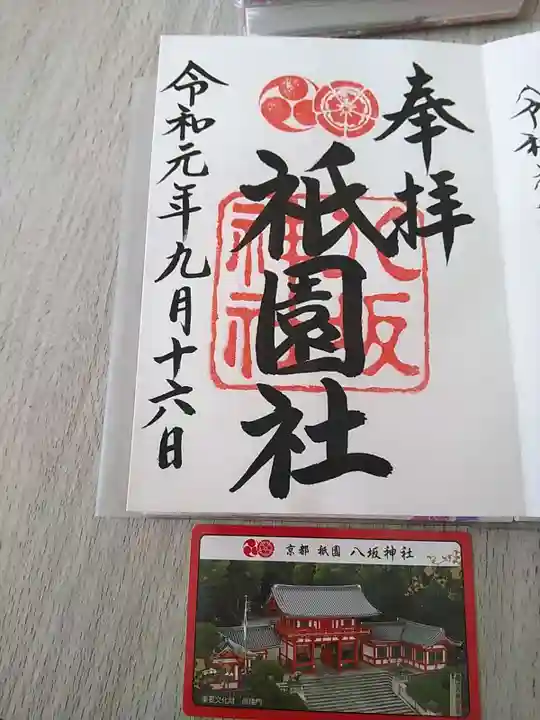 奉拝
八坂
神社
祇園社
令和元年九月十六日
令和
京都 祇園 八坂神社
重要文化財 西楼門